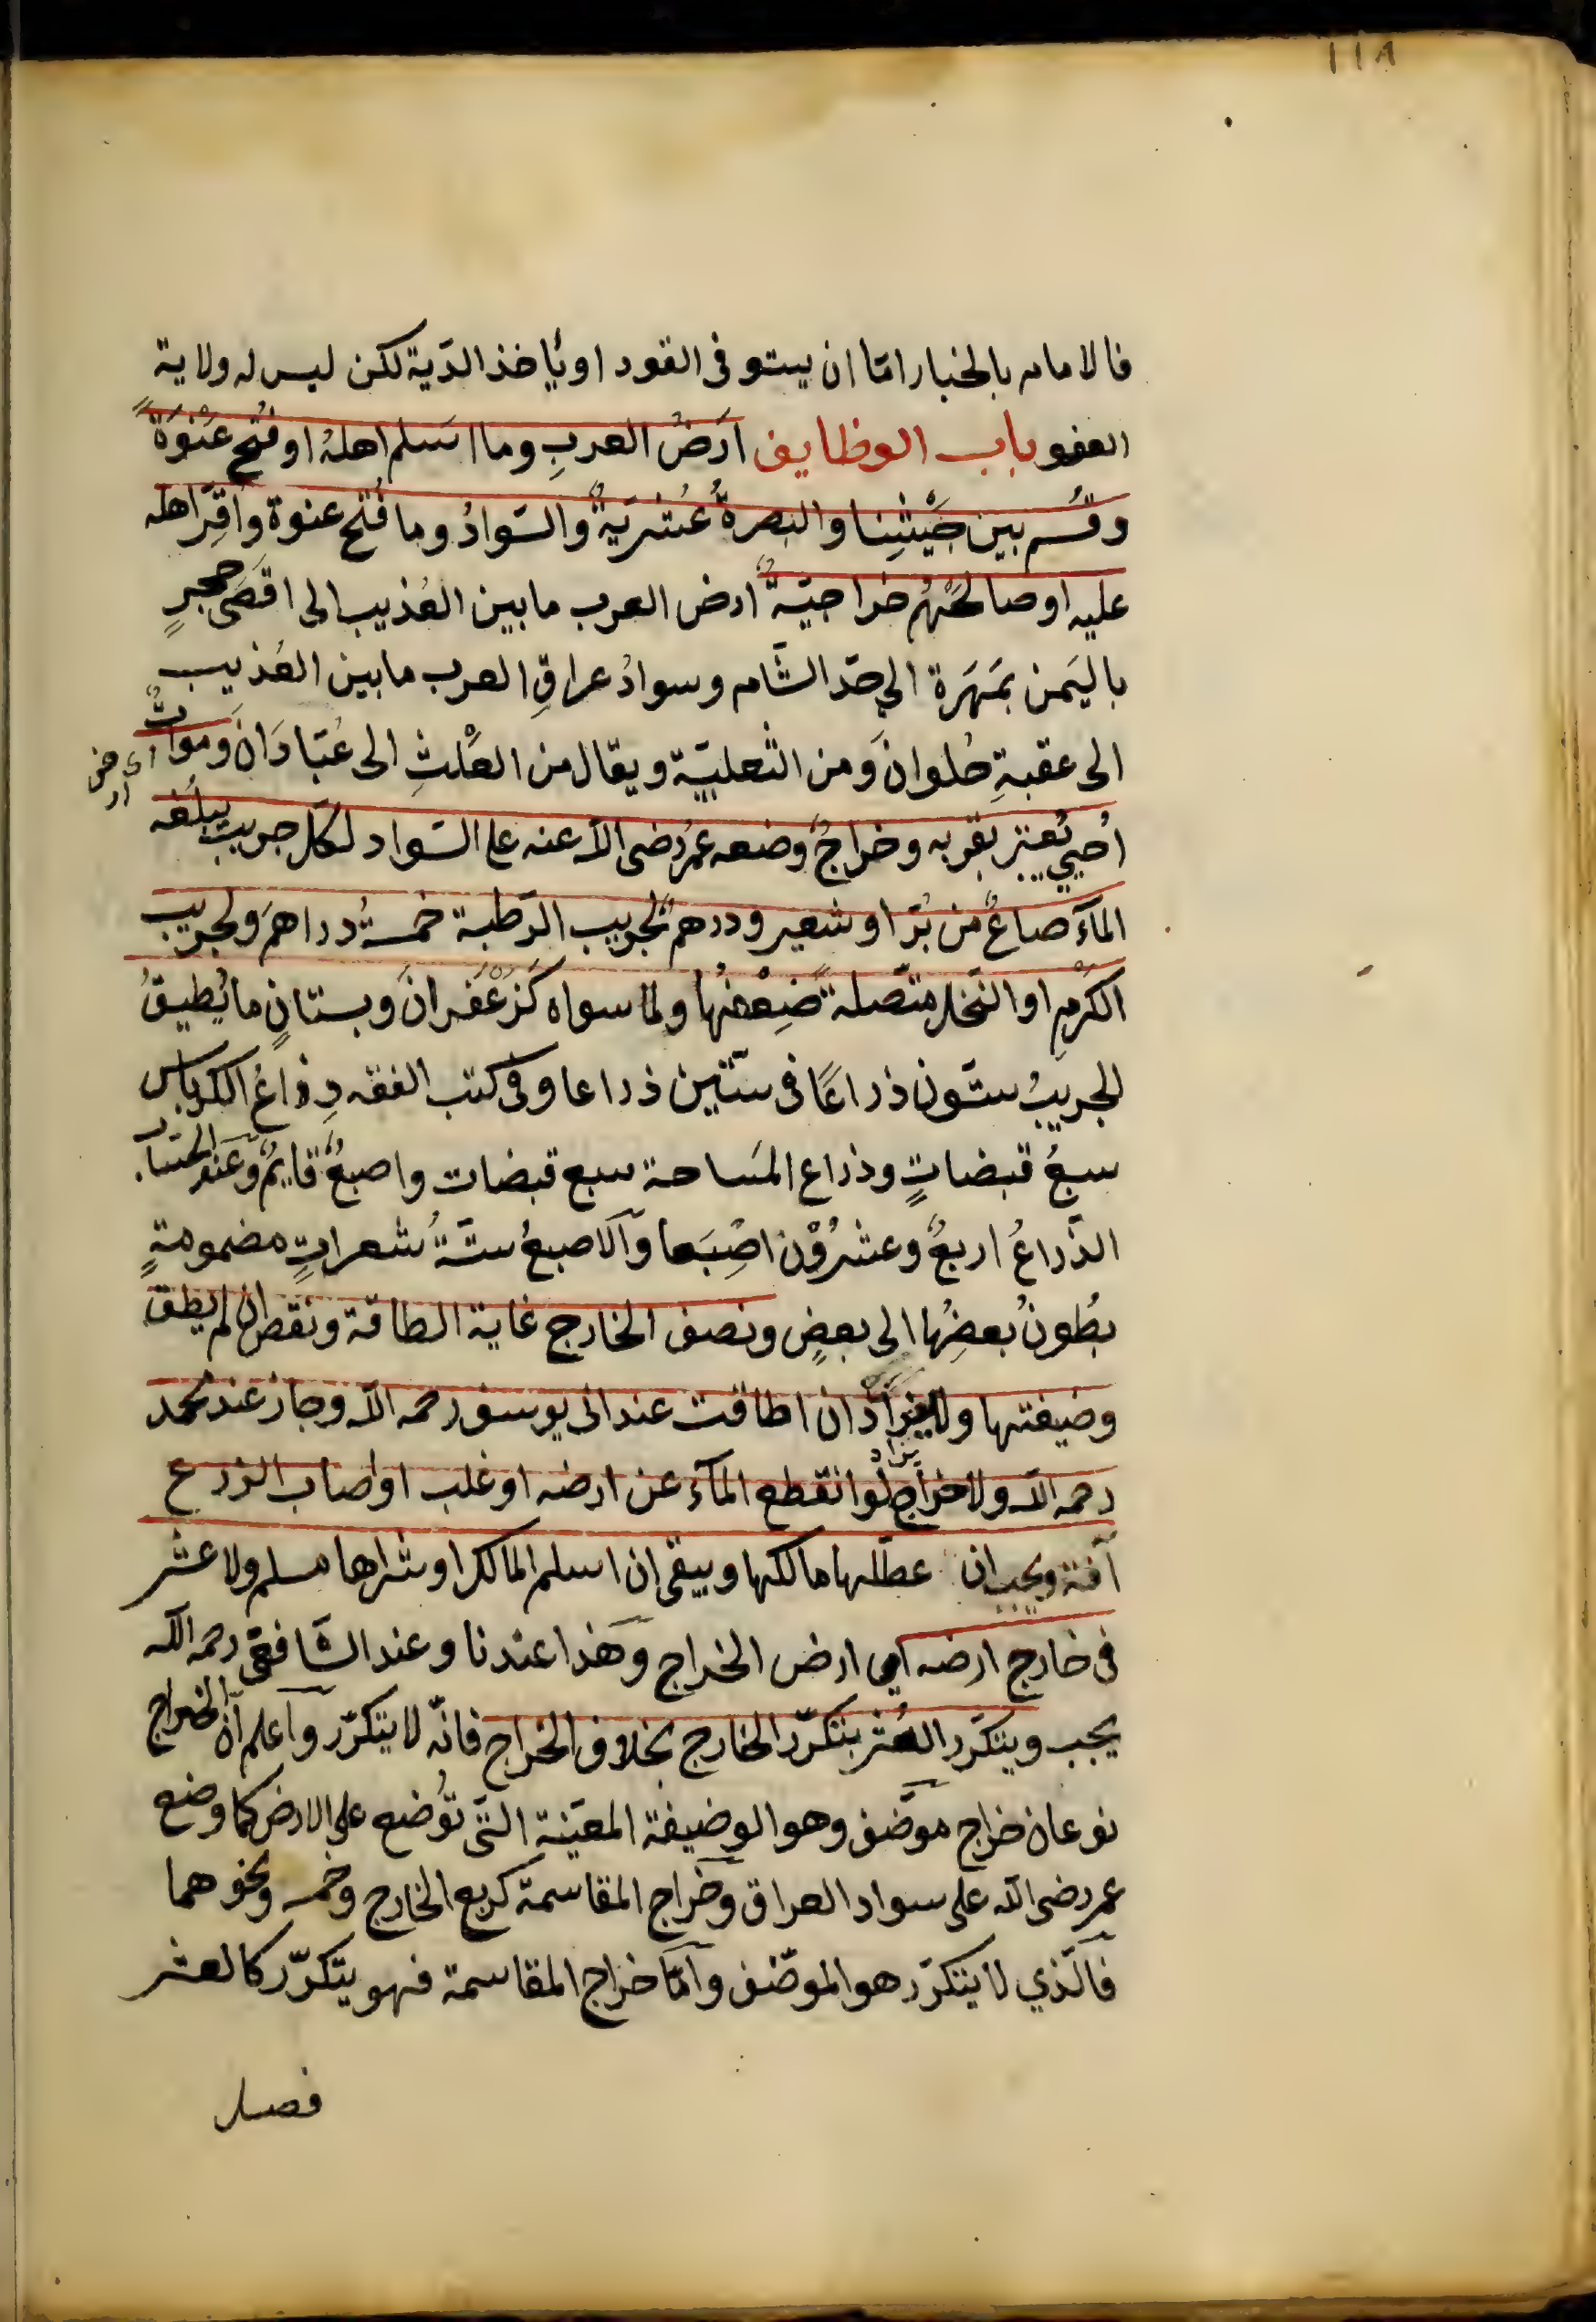 ١١٨
فالامام بالخيار امّا ان يستوفى القود او يأخذ الدّية لكن ليس له ولاية
العفو باب الوظايف ارضُ العربِ وما اسلم اهلهُ او فُتح عَنْوَةً
وقُسم بين جَيْشِنا والبصرةُ عُشْريّةٌ والسّوادُ وما فُتح عنوة واُقِرّ اهله
عليه او صالحهُم خراجيّةٌ ارض العرب ما بين العُذيب الى اقصَى حجرٍ
باليَمن بمَهَرَة الى حدّ الشّام وسوادُ عراقِ العرب ما بين العُذيب
الى عقبةِ حُلوانَ ومن الثّعلبيّة ويقال من العَلْثِ الى عَبّادَانَ ومواتٌ
اى ارض
اُحيي يُعتبر بقربه وخراجٌ وضعه عمرُ رضى الله عنه على السّواد لكل جريب يبلغه
المآء صاعٌ من بُرّ او شعير ودرهمٌ لجريب الرّطبة خمسةُ دراهمَ ولجريب
الكرْمِ او النّخل متّصلةً ضِعْفُها ولما سواه كزَعْفَرانَ وبستانٍ ما يُطيقُ
الجريبُ ستّون ذراعًا فى ستّين ذراعا وفى كتب الفقه ذِراعُ الكرباس
سبعُ قبضاتٍ وذراع المَساحة سبع قبضات واصبعٌ قايمٌ وعند الحُسّاب
الذّراعُ اربعٌ وعشرُوْن اصْبَعا والاصبعُ ستّةُ شعراتٍ مضمومةٍ
بُطونُ بعضِها الى بعضٍ ونصف الخارج غاية الطاقة ونقص ان لم يطق
وضيفتها ولا يزاد ان اطاقت عند ابى يوسف رحمه الله وجاز عند محمد
يزاد
رحمه الله ولا خراج لو انقطع المآء عن ارضه او غلب او اصاب الزرع
آفة ويجب ان عطّلها مالكها ويبقى ان اسلم المالك او شراها مسلم ولا عشر
فى خارج ارضه اي ارض الخراج وهذا عندنا وعند الشّافعى رحمه الله
يجب ويتكرّر العُشر بتكرّر الخارج بخلاف الخراج فانّه لا يتكرّر واعلم انّ الخراج
نوعان خراج موضّف وهو الوضيفة المعيّنةِ التى تُوضع على الارض كما وضع
عمر رضى الله على سواد العراق وخراج المقاسمة كربع الخارج وخمسه ونحوهما
فالّذي لا يتكرّر هو الموضّف وامّا خراج المقاسمة فهو يتكرّر كالعشر
فصل